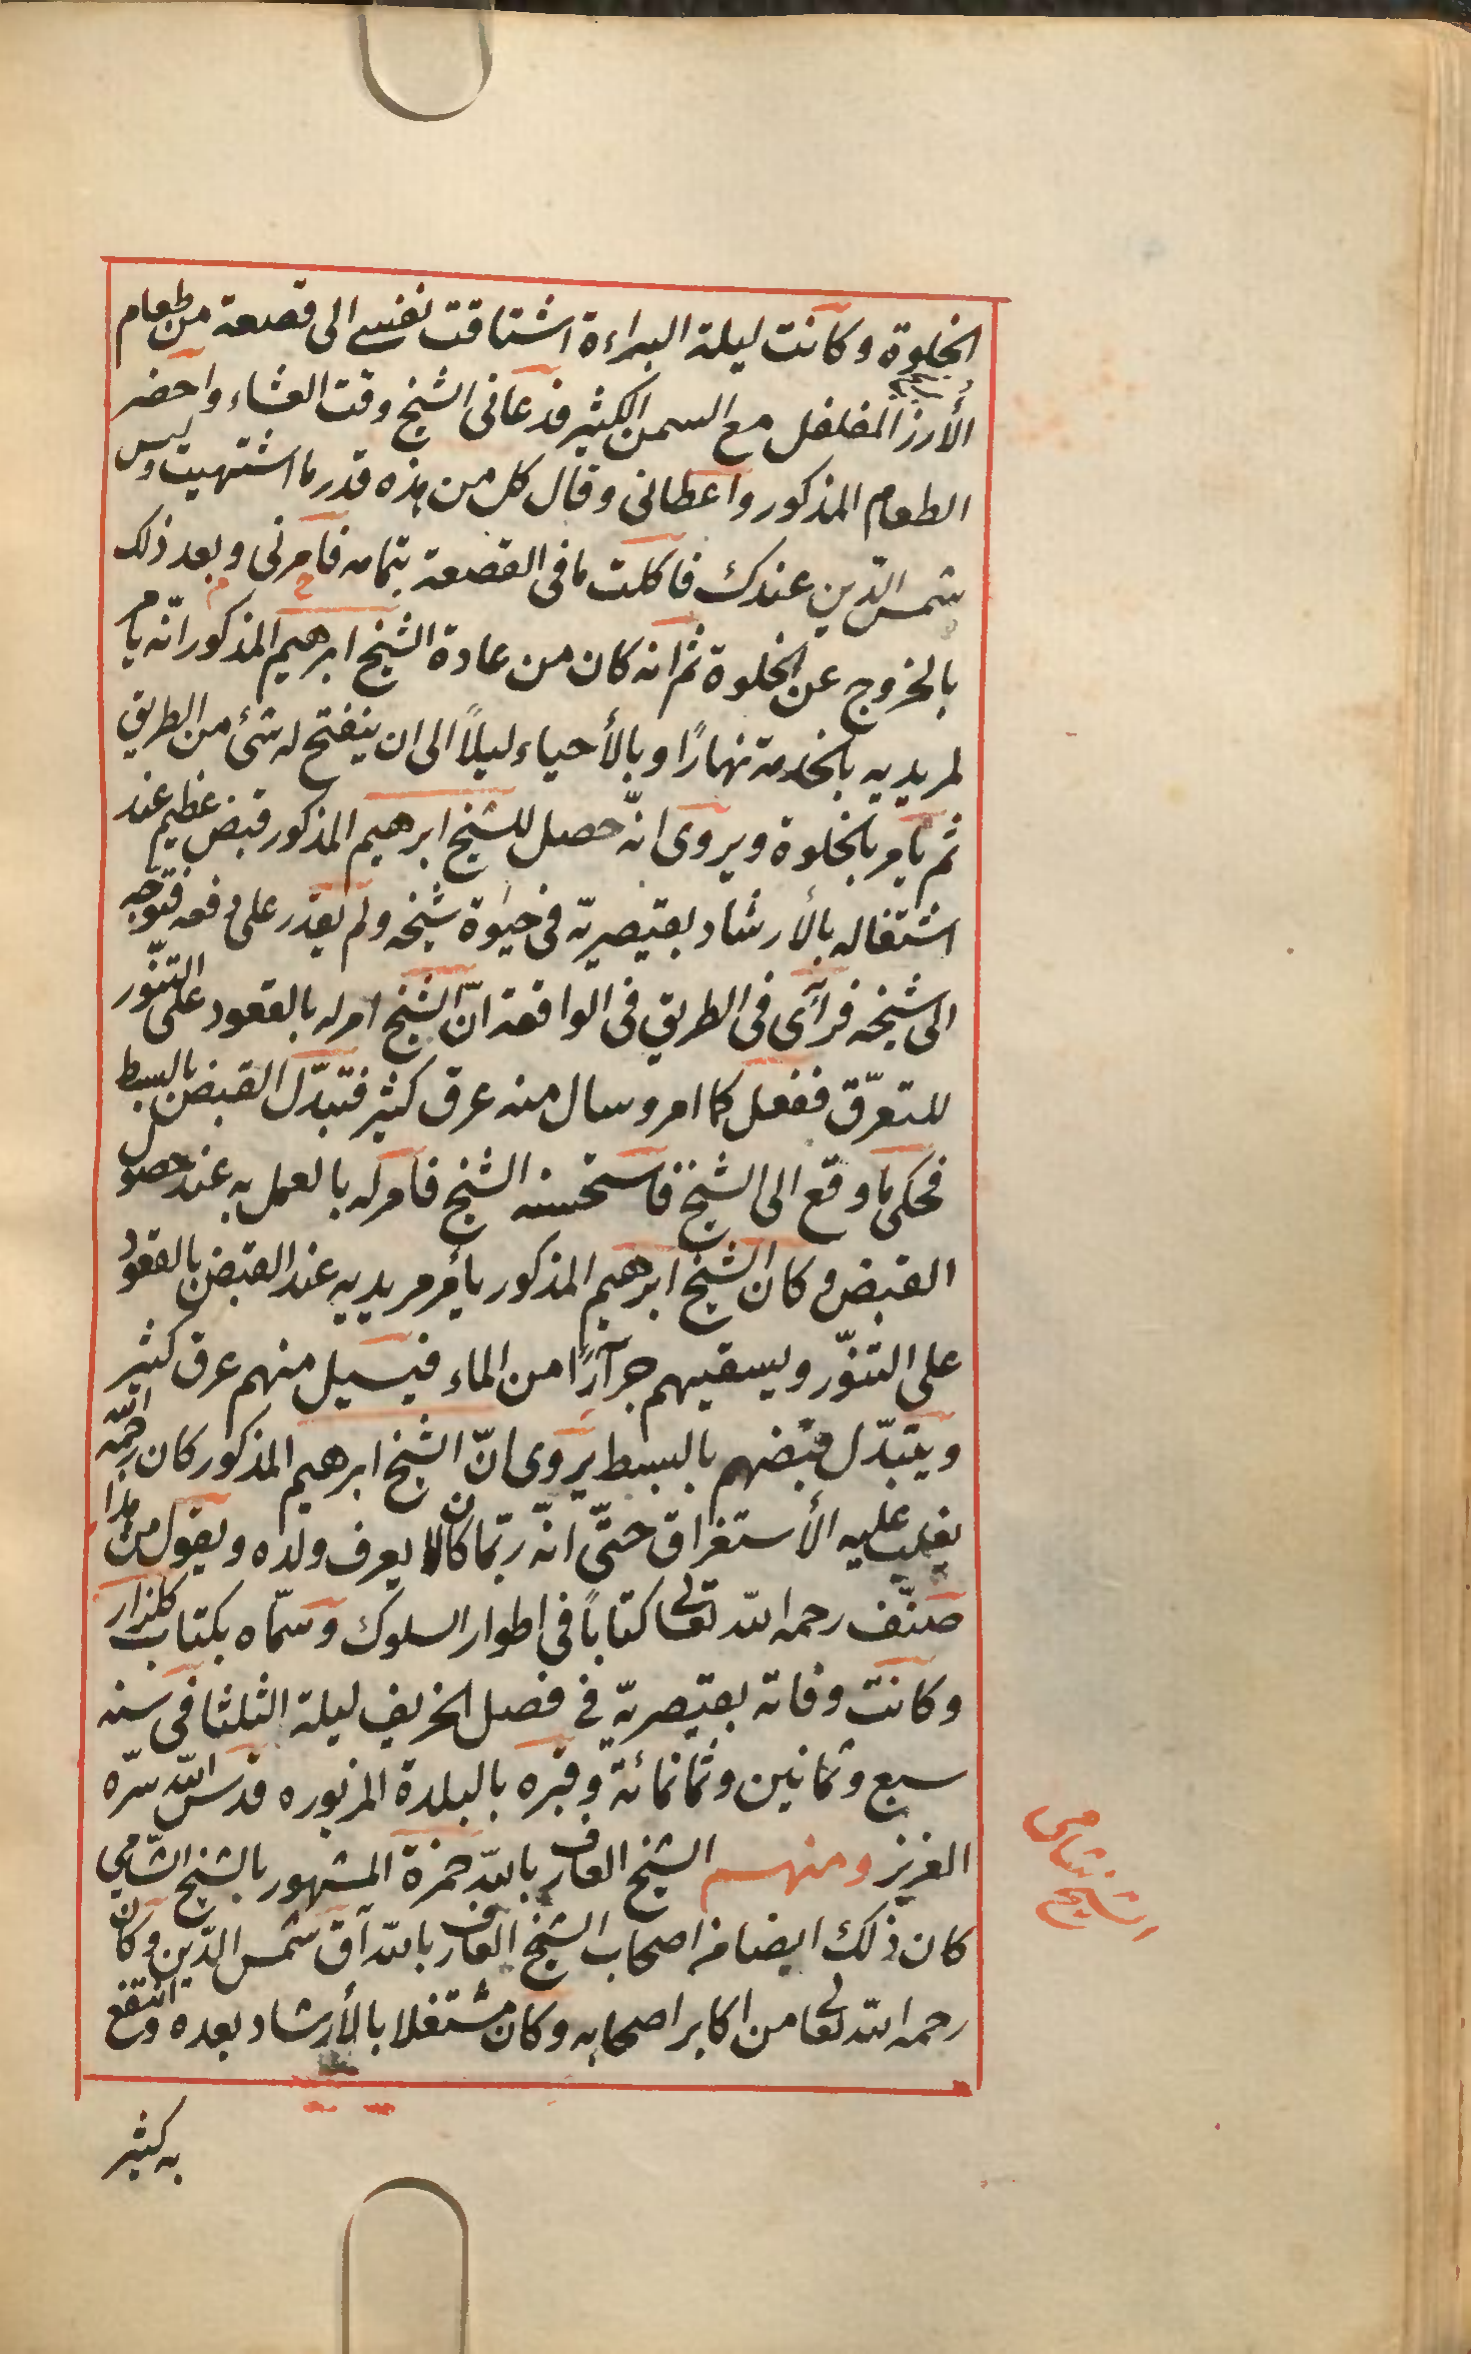 الخلوة وكانت ليلة البراءة اشتاقت نفسى الى قصعة من طعام
الأرز المفلفل مع السمن الكثير فدعانى الشيخ وقت العشاء واحضر
الطعام المذكور واعطانى وقال كل من هذه قدر ما اشتهيت وليس
شمس الدين عندك فاكلت ما فى القصعة بتمامه فامرنى وبعد ذلك
بالخروج عن الخلوة ثم انه كان من عادة الشيخ ابرهيم المذكور انّه يامر
لمريديه بالخدمة نهارًا وبالأحياء ليلًا الى ان ينفتح له شئ من الطريق
ثم يامر بالخلوة ويروى انّه حصل للشيخ ابرهيم المذكور قبض عظيم عند
اشتغاله بالأرشاد بقيصريّة فى حيوة شيخه ولم يقدر على دفعه فتوجه
الى شيخه فرأى فى الطريق فى الواقعة انّ الشيخ امر له بالقعود على التنّور
للتعرّق ففعل كما امر وسال منه عرق كثير فتبدّل القبض بالبسط
فحكى ما وقع الى الشيخ فاستحسنه الشيخ فامر له بالعمل به عند حصول
القبض وكان الشيخ ابرهيم المذكور يأمر مريديه عند القبض بالقعود
على التنّور ويسقيهم جرآرًا من الماء فيسيل منهم عرق كثير
ويتبدّل قبضهم بالبسط يروى انّ الشيخ ابرهيم المذكور كان رحمه الله
يغلب عليه الأستغراق حتّى انّه ربّما كان لا يعرف ولده ويقول من هذا
صنّف رحمه الله تعالى كتابًا فى اطوار السلوك وسمّاه بكتاب كلزار
وكانت وفاته بقيصريّة فى فصل الخريف ليلة الثلثا فى سنه
سبع وثمانين وثمانمائة وقبره بالبلدة المزبوره قدس الله سرّه
العزيز ومنهم الشيخ العارف بالله حمزة المشهور بالشيخ الشامى
الشيخ شامى
كان ذلك ايضا من اصحاب الشيخ العارف بالله آق شمس الدّين وكان
رحمه الله تعالى من اكابر اصحابه وكان مشتغلا بالأرشاد بعده وانتفع
به كثير